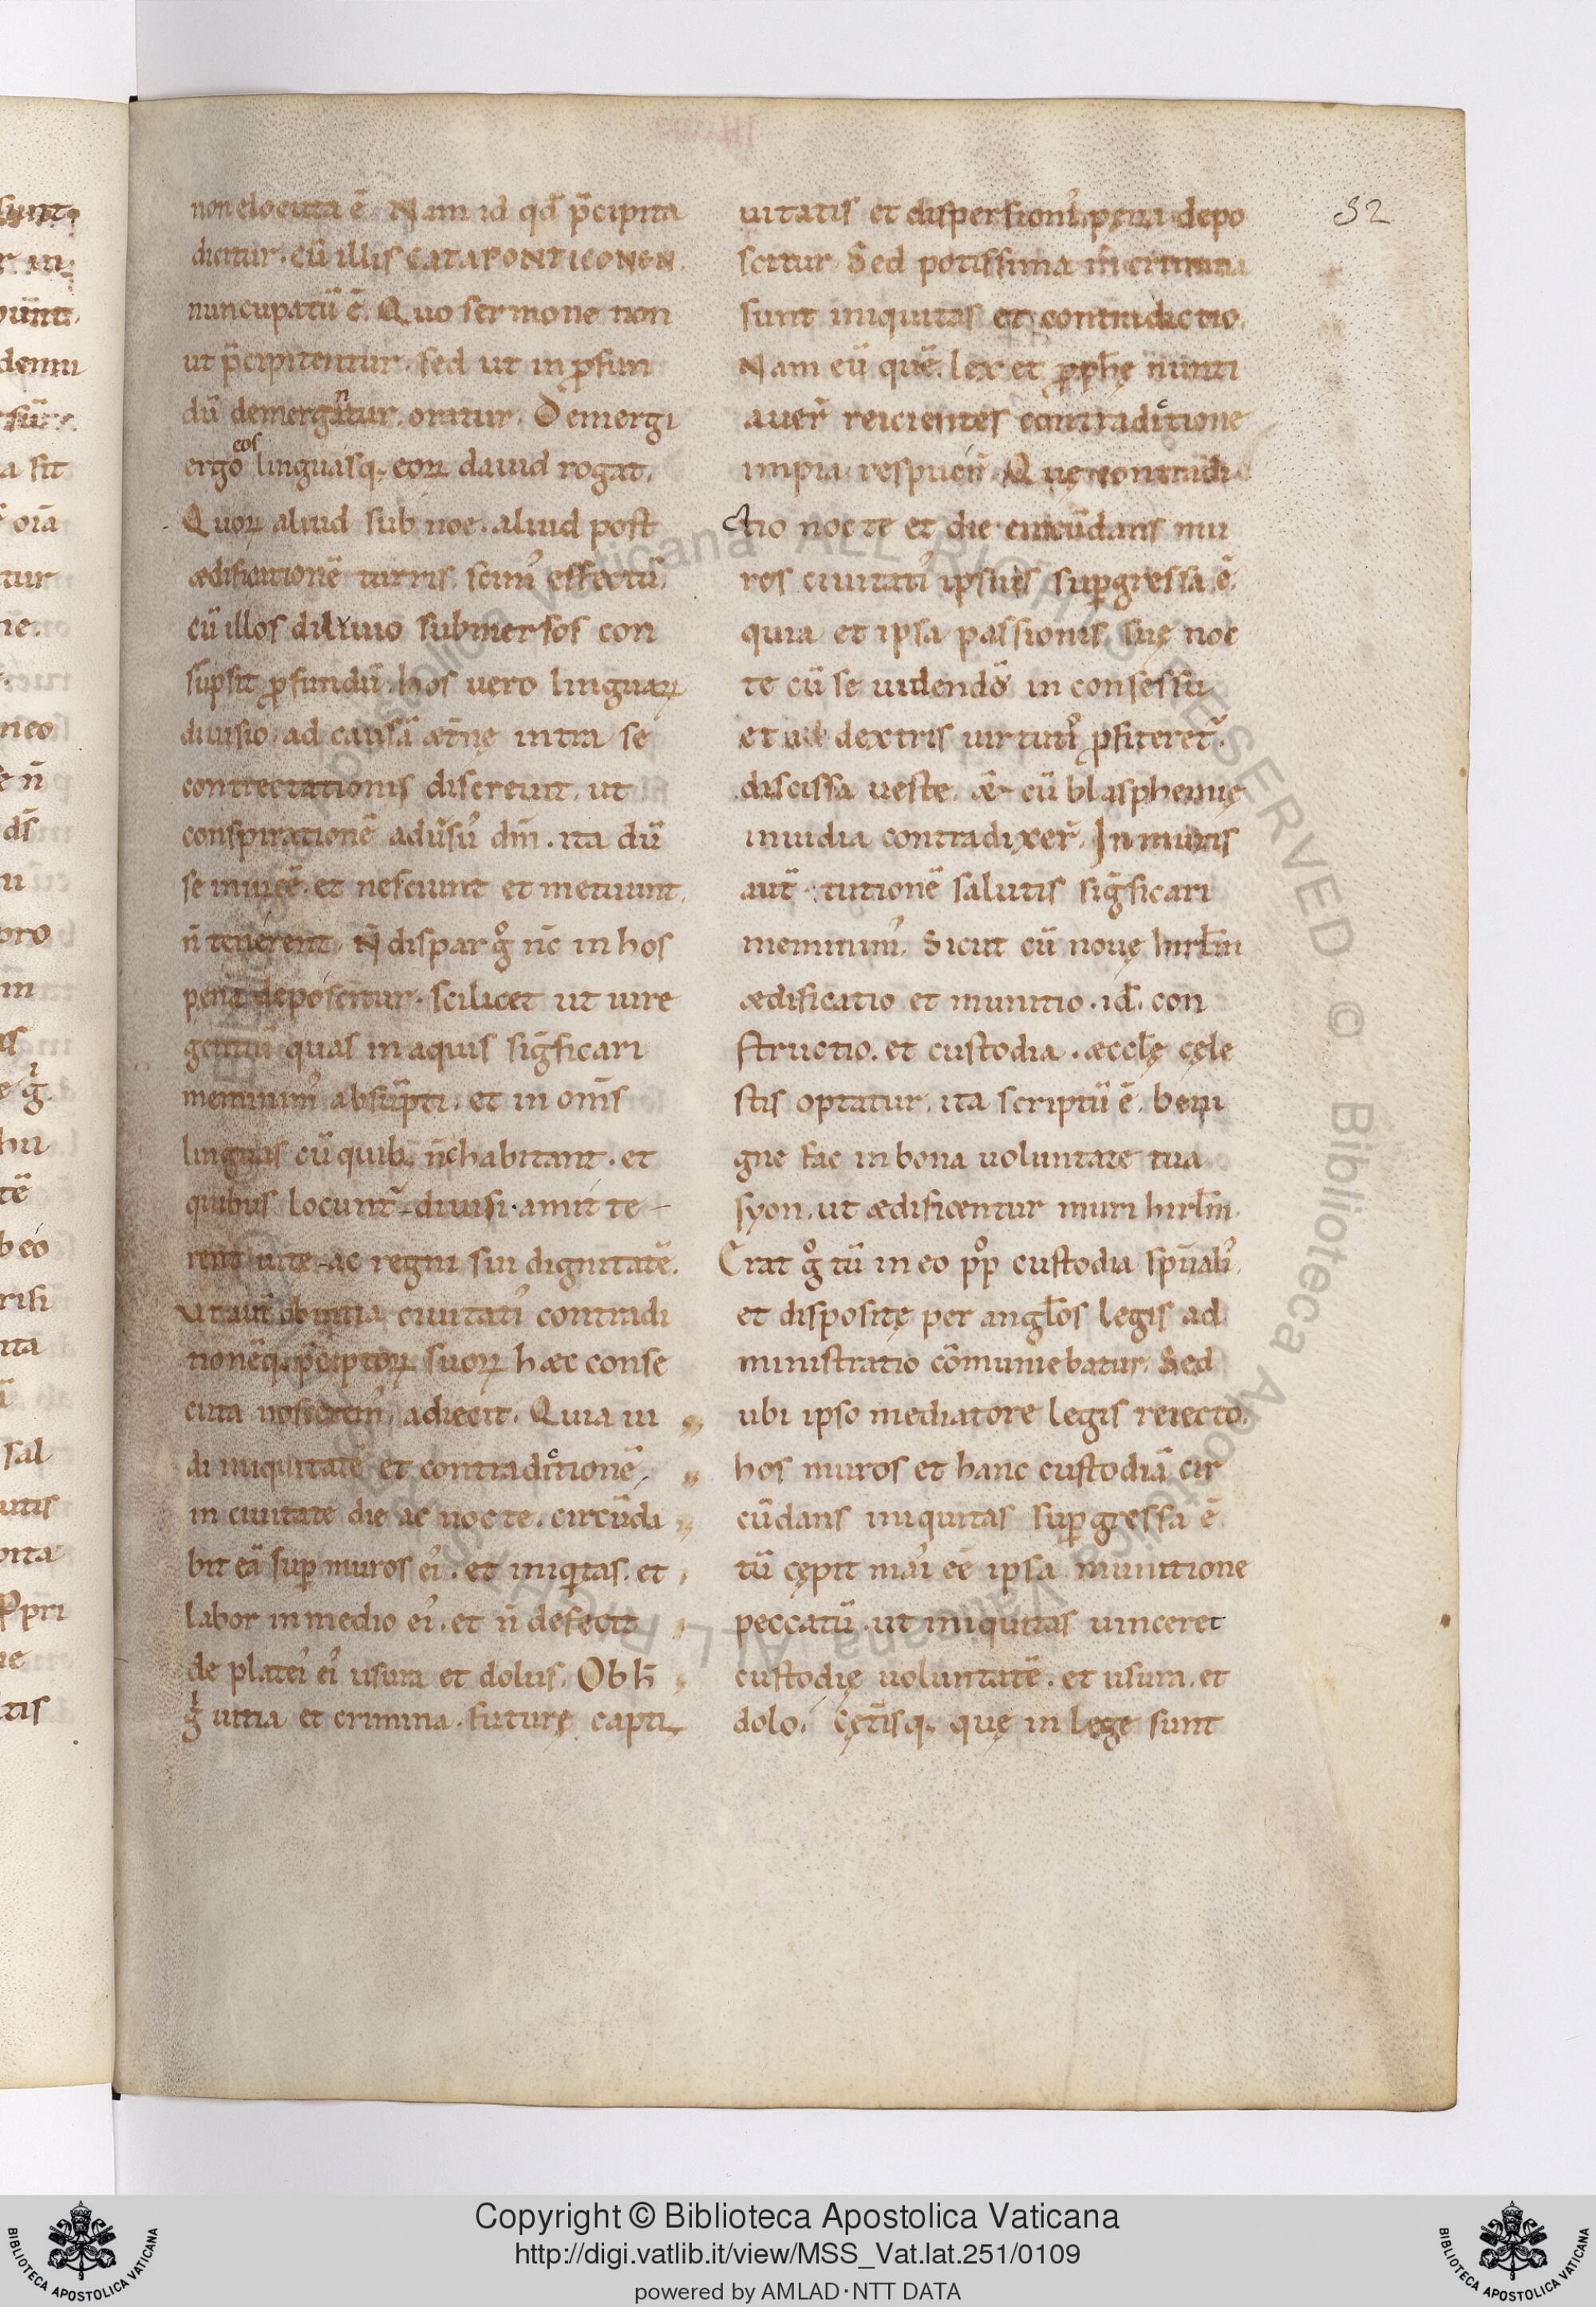 non elocuta ē. Nam id qđ p̄cipita
dicitur. cū illis CATAPONTICONEN.
nuncupatū ē. Quo sermone non
ut p̄cipitentur. sed ut in ꝓfun
dū demergantur. oratur. Demergi
ergo eos linguasq; eoꝝ dauid rogat.
Quoꝝ aliud sub noe. aliud post
ædificationē turris scim᾽ effectū.
cū illos diluuio submersos con
supsit ꝓfundū. hos uero linguaꝝ
diuisio. ad causā æt̄nę intra se
contrectationis discreuit. ut
conspirationē adūsū᾽ dn̄i. ita dū
se inuicē. et nesciunt et metuunt.
n̄ tenerent. N̄ dispar gͦ n̄c in hos
pena deposcitur. scilicet ut iure
gentiū quas in aquis sig̅ficari
meminim᾽ absūpti. et in om̄s
linguas cū quib; n̄c habitant. et
quibus locunt̃ diuisi. amitte
rent uite ac regni sui dignitatē.
Vt aut̄ ob uitia ciuitati᾽ contradi
tionēq; p̄ceptoꝝ suoꝝ hæc conse
cuta noscerem᾽. adiecit. Quia ui
di iniquitatē et contradictionē.
in ciuitate die ac nocte. circūda
bit eā suꝑ muros ei᾽. et iniqͥtas. et
labor in medio ei᾽. et n̄ defecit
de platei᾽ ei᾽ usura et dolus. Ob h̄
gͥ uitia et crimina. futurę capti
uitatis et dispersioni᾽ pęna depo
scitur. Sed potissima in̄ crimina
sunt iniquitas et contradictio.
Nam eū quē lex et ꝓph̄ę nunti
auer̃ reicientes contradictione
impia respueŕ. Quę contradi
ctio nocte et die circūdans mu
ros ciuitati᾽ ipsius suꝑgressa ē.
quia et ipsa passionis suę noc
te cū se uidendū in consessu
et a dextris uirtuti᾽ ꝓfiteret̃.
discissa ueste. ei cū blasphemię
inuidia contradixer̃. In muris
aut̄ tutionē salutis sig̅ficari
meminim᾽. Sicut cū nouę hirl̄m
ædificatio et munitio. id̄. con
structio. et custodia. æccl̄ę cęle
stis optatur. ita scriptū ē. beni
gne fac in bona uoluntate tua
syon. ut ædificentur muri hirl̄m.
Erat gͦ tū in eo ppͦ custodia spiritali᾽.
et dispositę per angl̄os legis ad
ministratio cōmuniebatur. Sed
ubi ipso mediatore legis reiecto.
hos muros et hanc custodiā cir
cūdans iniquitas suꝑgressa ē.
tū cępit mai᾽ eē ipsa munitione
peccatū. ut iniquitas uinceret
custodię uoluntatē. et usura. et
dolo. cęt̄isq; quę in lege sunt
32
Copyright © Biblioteca Apostolica Vaticana
http://digi.vatlib.it/view/MSS_Vat.lat.251/0109
powered by AMLAD·NTT DATA